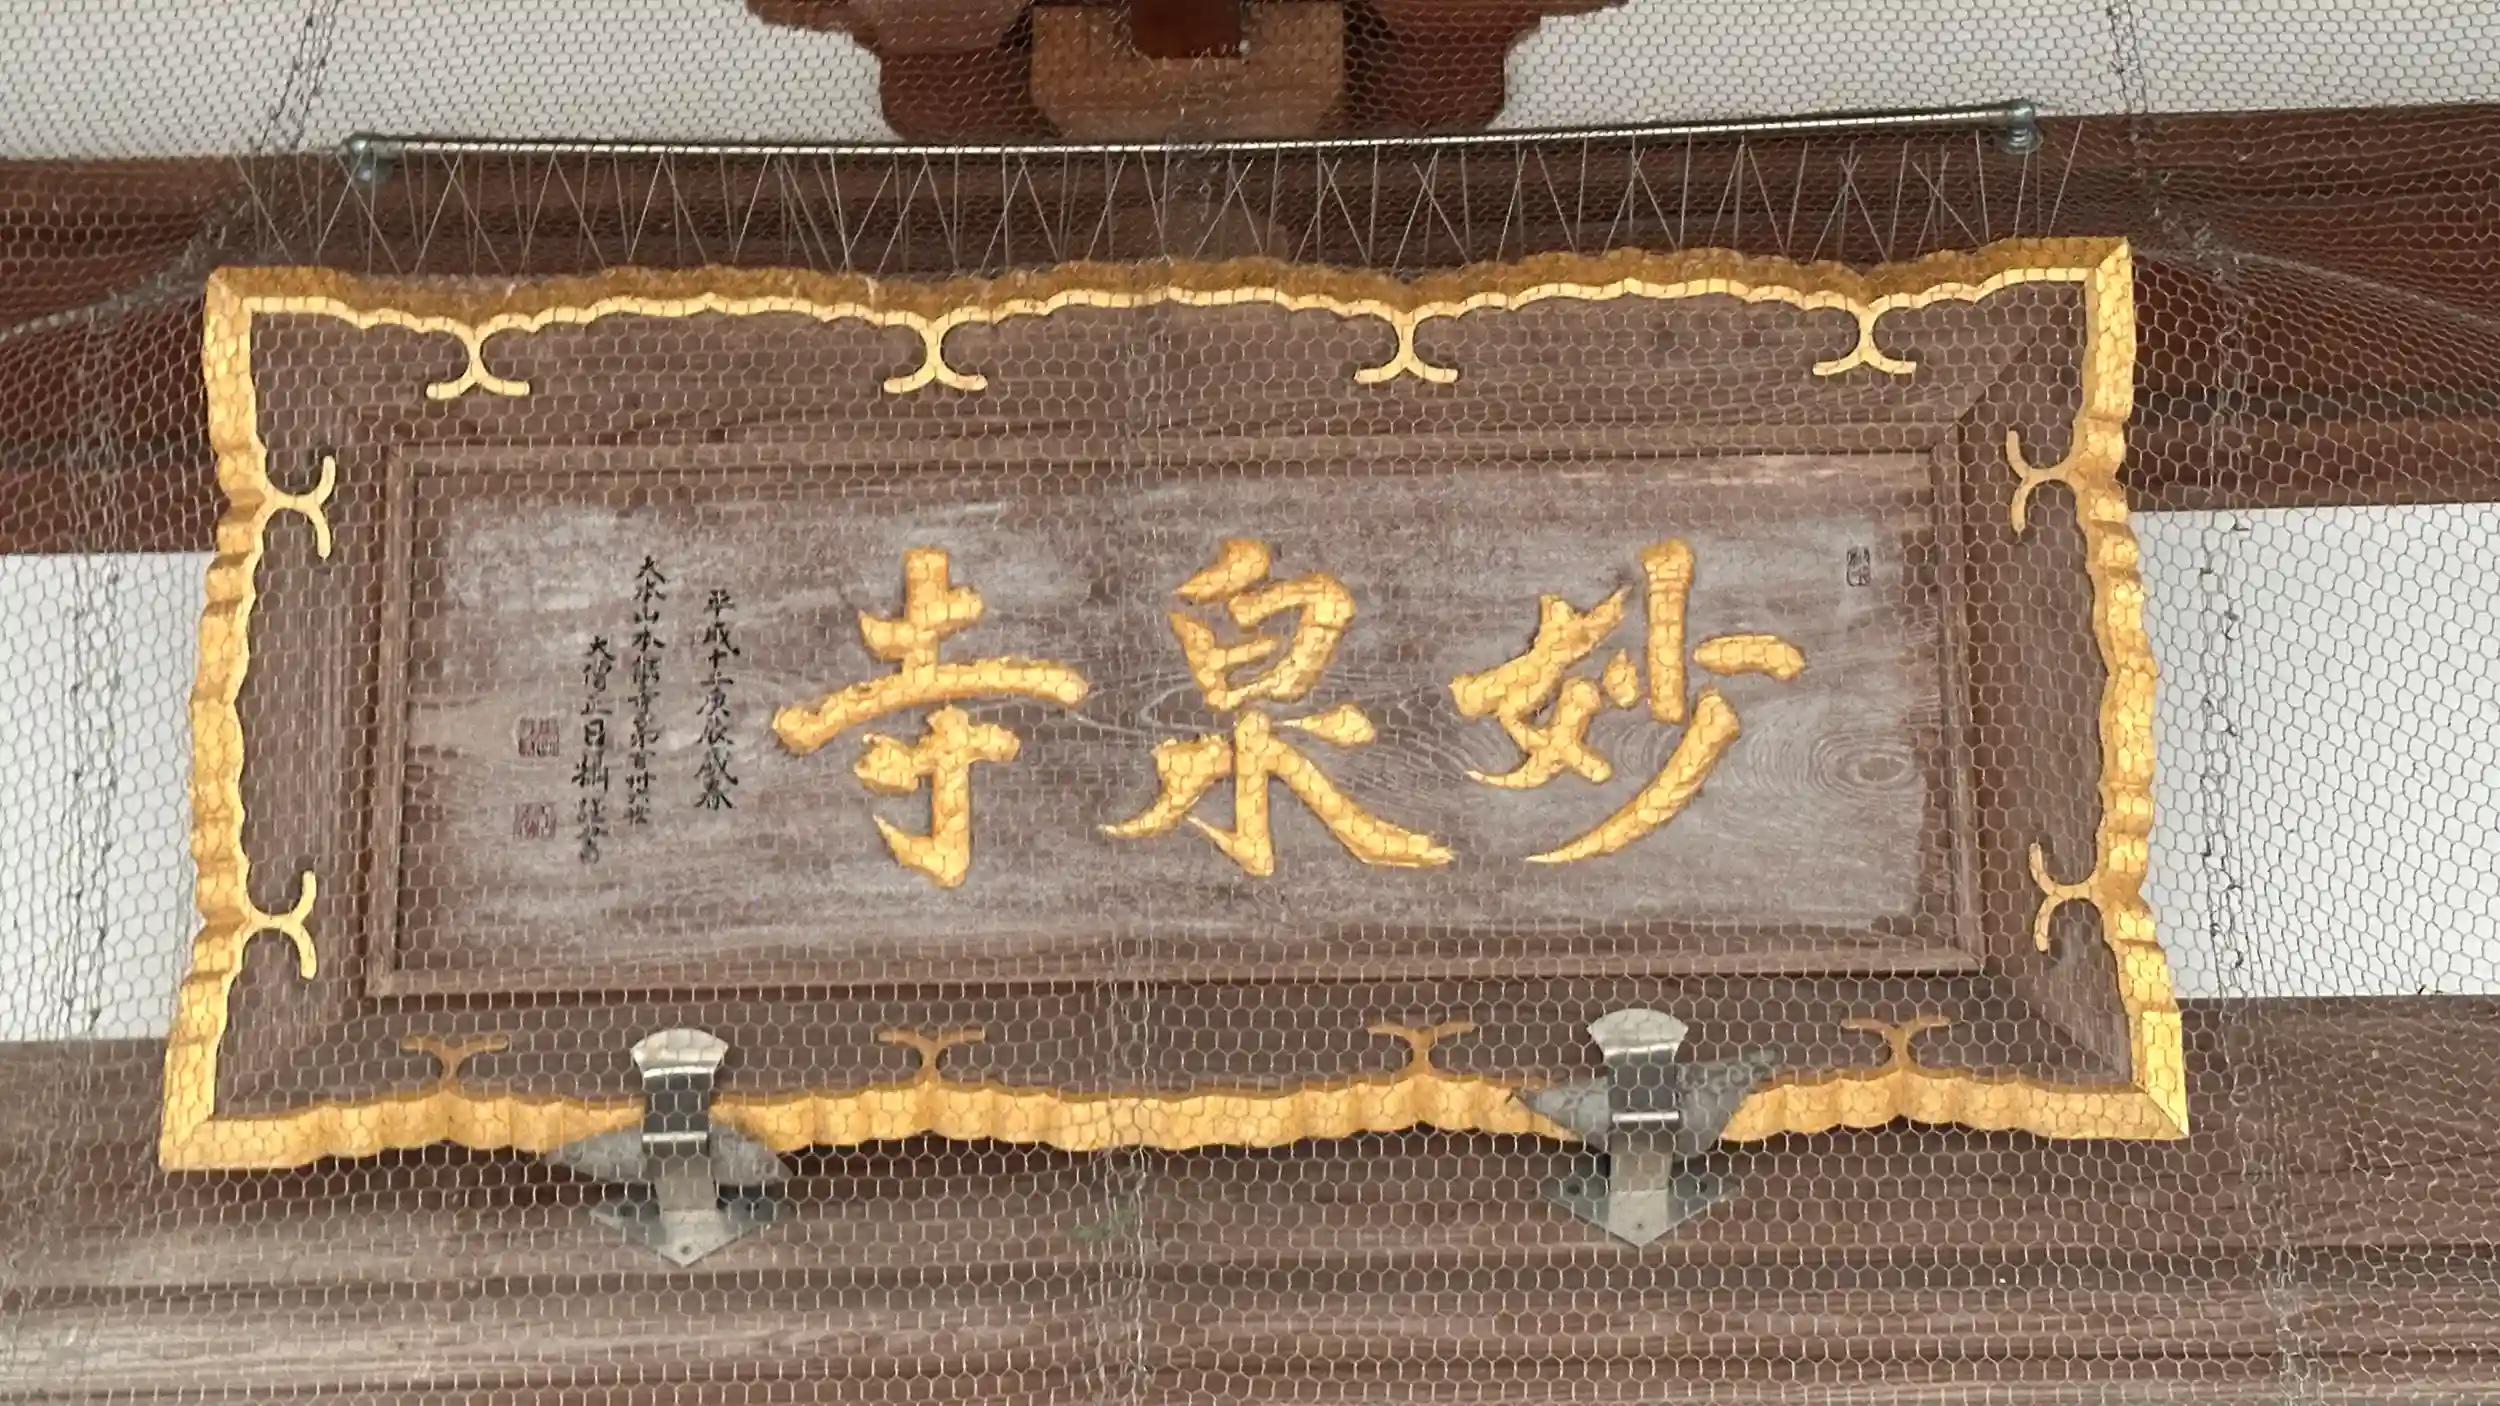 妙泉寺
平成十二庚辰歳春
大本山本能寺第百卅六世
大僧正日